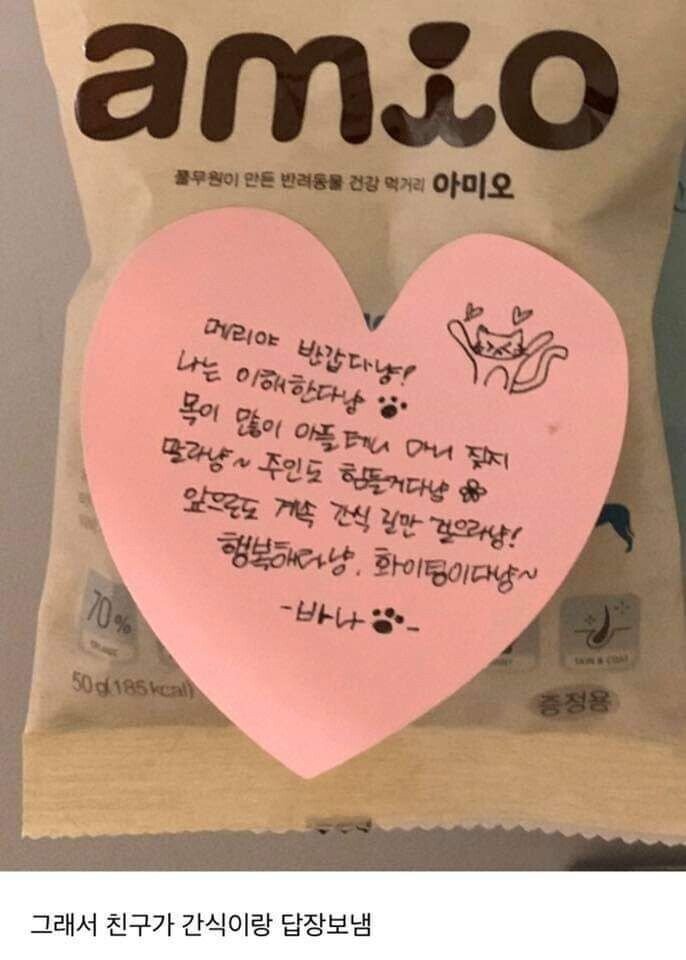 amio
풀무원이 만든 반려동물 건강 먹거리 아미오
메리야 반갑다냥!
나는 이해한다냥
목이 많이 아플테니 마니 짖지
말라냥~ 주인도 힘들거다냥
앞으로도 계속 간식 길만 걸으라냥!
행복해라냥. 화이팅이다냥~
-바나-
70%
ORGANIC
50g(185kcal)
SKIN & COAT
증정용
그래서 친구가 간식이랑 답장보냄